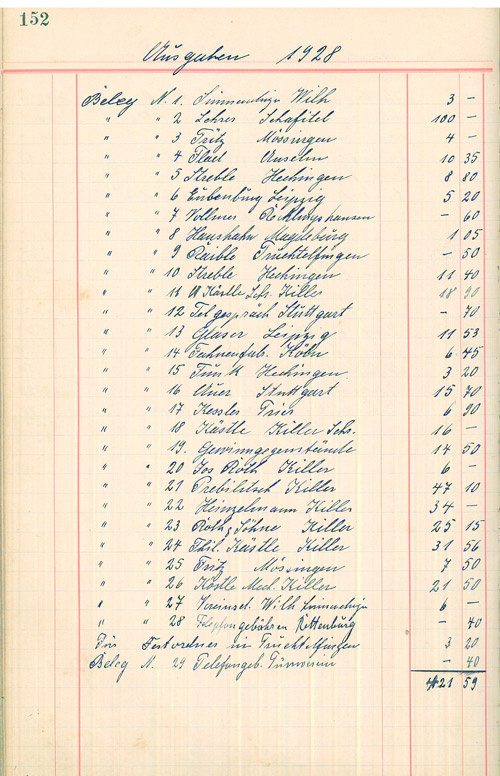 152
Ausgaben 1928
Beleg N. 1. Wilh 3 –
" " 2 Lehrer Schafitel 100 –
" " 3 Fritz Mössingen 4 –
" " 4 Anselm 10 35
" " 5 Streble Hechingen 8 80
" " 6 Eulenburg Leipzig 5 20
" " 7 Vollmer Recklinghausen – 60
" " 8 Haushahn Magdeburg 1 05
" " 9 Raible Truchtelfingen – 50
" " 10 Streble Hechingen 11 40
" " 11 Kästle Schr. Killer 18 90
" " 12 Telgespräch Stuttgart – 70
" " 13 Glaser Leipzig 11 53
" " 14 Fahnenfab. Köln 6 45
" " 15 Funk Hechingen 3 20
" " 16 Auer Stuttgart 15 70
" " 17 Kessler Trier 6 90
" " 18 Kästle Killer Schr. 16 –
" " 19. Gewinngegenstände 14 50
" " 20 Jos Roth Killer 6 –
" " 21 Killer 47 10
" " 22 Heinzelmann Killer 34 –
" " 23 Roth, Söhne Killer 25 15
" " 24 Kästle Killer 31 56
" " 25 Fritz Mössingen 7 50
" " 26 Kästle Killer 21 50
" " 27 Wilh 6 –
" " 28 Telephongebühren Rottenburg – 40
Für Festordner in Truchtelfingen 3 20
Beleg N. 29 Telefongeb. Turnverein – 40
421 59